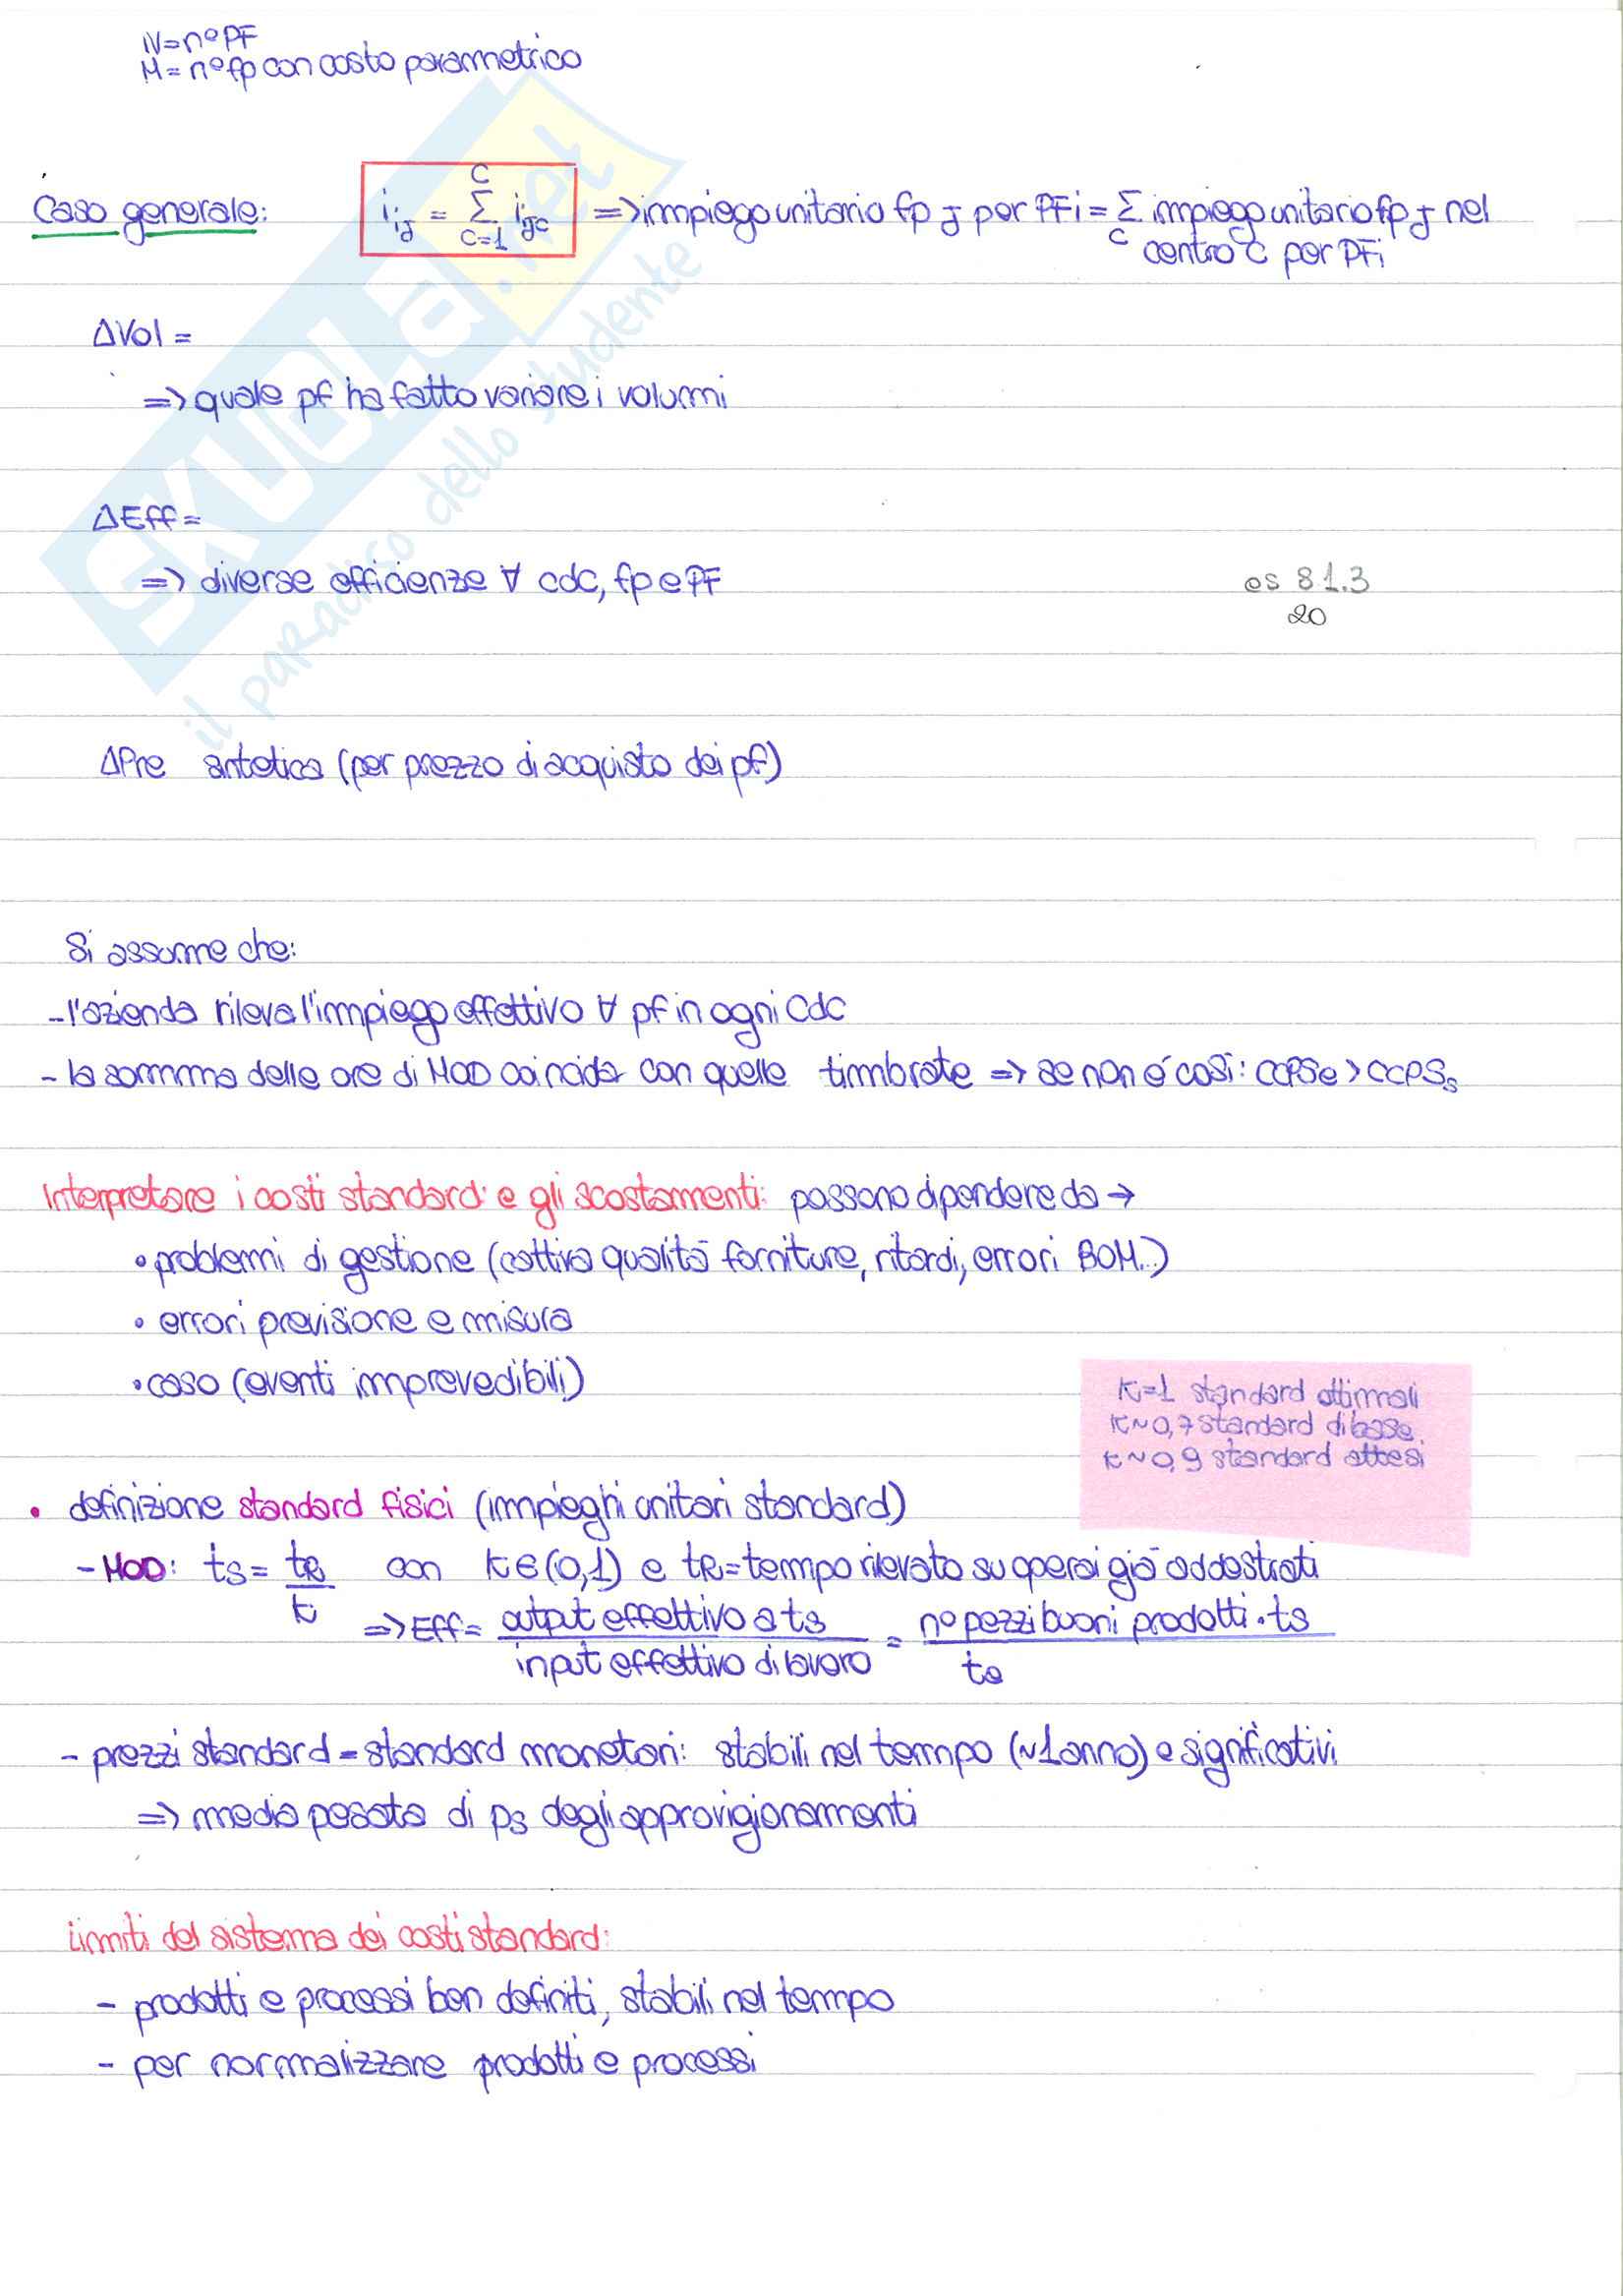 N=n° PF
M=n° fp con costo parametrico
Caso generale: i_ij = Σ_{c=1}^{C} i_ijc => impiego unitario fp j per PFi = Σ_c impiego unitario fp j nel
centro C per PFi
ΔVol =
=> quale pf ha fatto variare i volumi
ΔEff =
=> diverse efficienze ∀ cdc, fp e PF
es 8 1.3
20
ΔPre sintetica (per prezzo di acquisto dei pf)
Si assume che:
- l'azienda rileva l'impiego effettivo ∀ pf in ogni CdC
- la somma delle ore di MOD coincida con quelle timbrate => se non è così: CCPSe > CCPSs
Interpretare i costi standard e gli scostamenti: possono dipendere da →
• problemi di gestione (cattiva qualità forniture, ritardi, errori BOM..)
• errori previsione e misura
• caso (eventi imprevedibili)
K=1 standard ottimali
K~0,7 standard di base
K~0,9 standard attesi
• definizione standard fisici (impieghi unitari standard)
- MOD: ts = tR/K con K∈(0,1) e tR=tempo rilevato su operai già addestrati
=> Eff = output effettivo a ts / input effettivo di lavoro = n° pezzi buoni prodotti · ts / te
- prezzi standard = standard monetari: stabili nel tempo (~1anno) e significativi
=> media pesata di ps degli approvigionamenti
Limiti del sistema dei costi standard:
- prodotti e processi ben definiti, stabili nel tempo
- per normalizzare prodotti e processi
SKUOLA.net
il paradiso dello studente